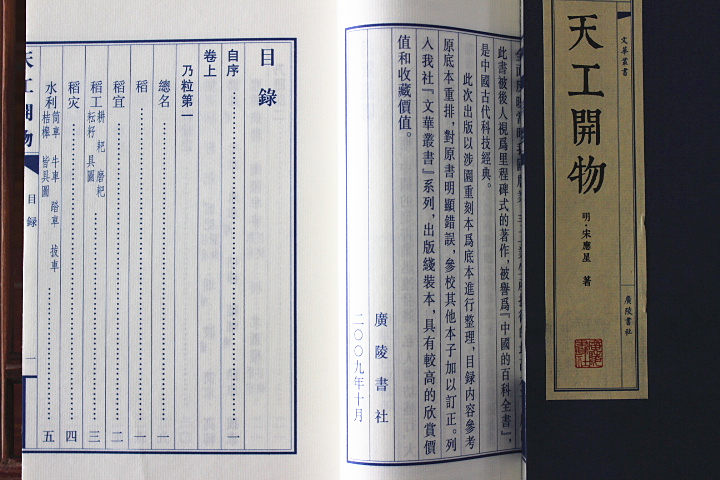 文華叢書
天工開物
明·宋應星 著
廣陵書社
此書被後人視爲里程碑式的著作，被譽爲『中國的百科全書』，
是中國古代科技經典。
此次出版以涉園重刻本爲底本進行整理，目録内容參考
原底本重排，對原書明顯錯誤，參校其他本子加以訂正。列
入我社『文華叢書』系列，出版綫裝本，具有較高的欣賞價
值和收藏價值。
廣陵書社
二〇〇九年十月
目録
自序 一
卷上
乃粒第一
總名 一
稻 一
稻宜 二
稻工 耕 耙 磨耙 耘耔 具圖 三
稻灾 四
水利 筒車 牛車 踏車 拔車 桔槔 皆具圖 五
天工開物
目録
一